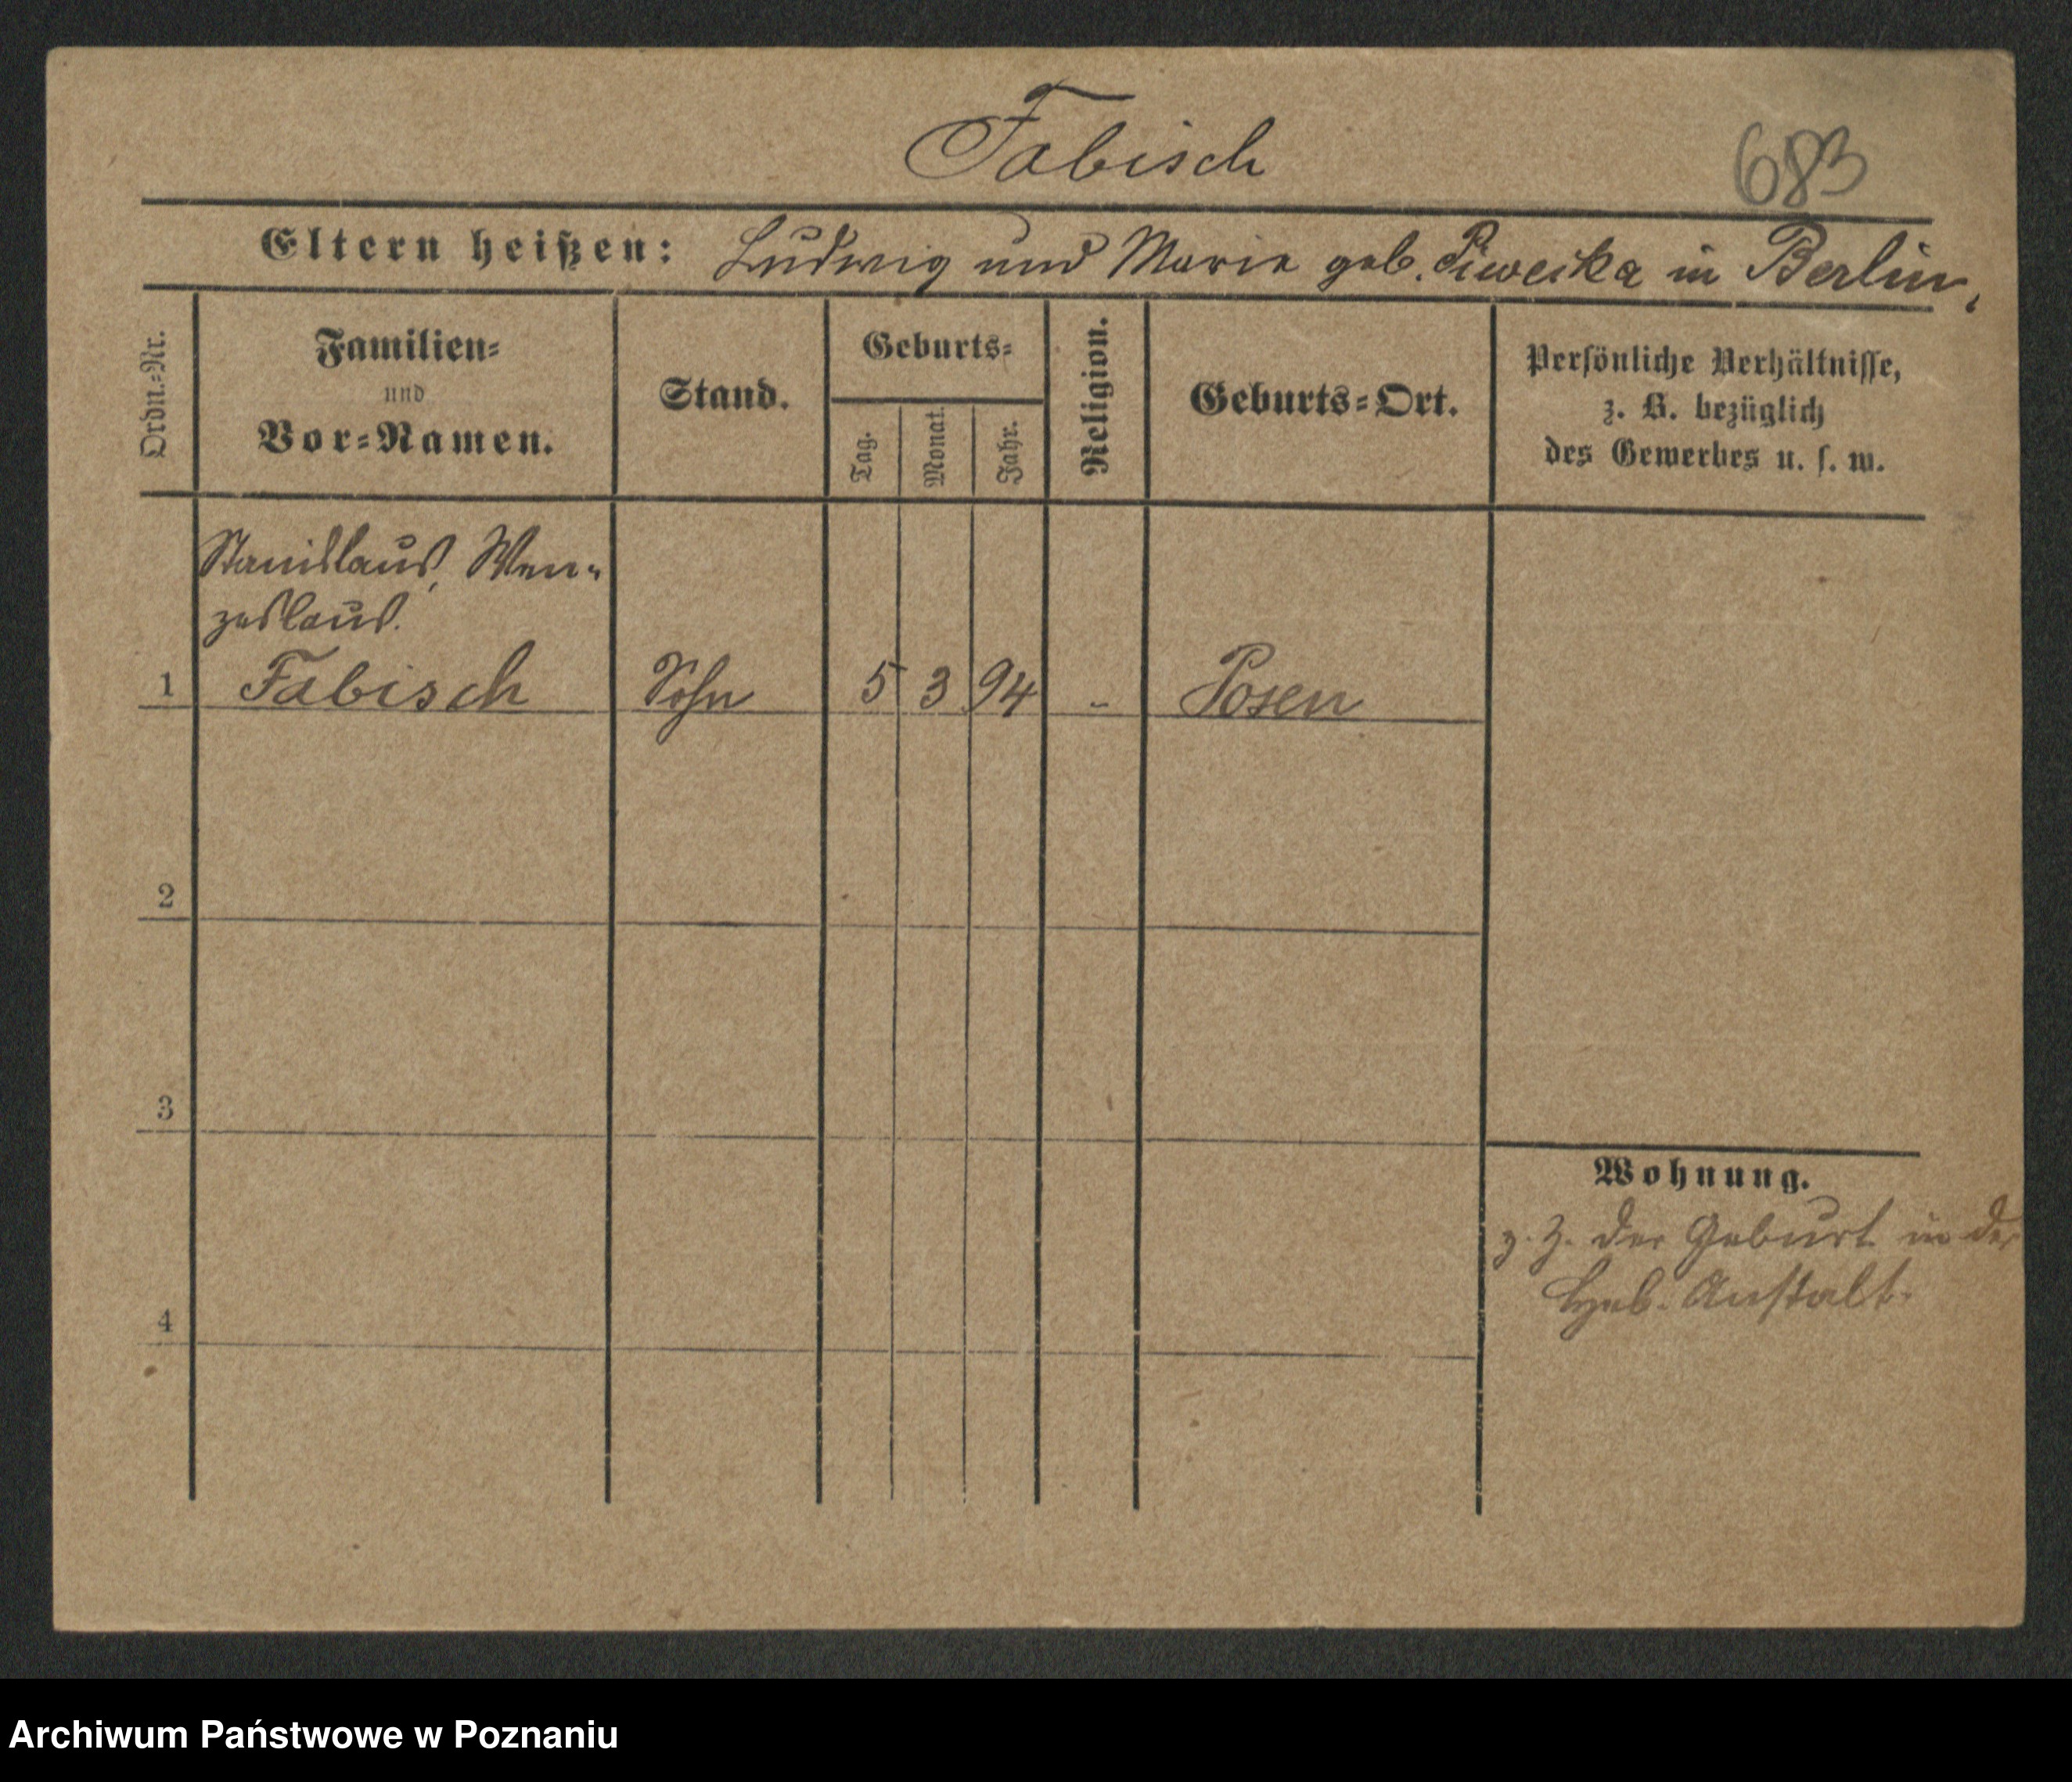 Fabisch
683
Eltern heißen: Ludwig und Marie geb. Piweika in Berlin.
Ordn.=Nr.
Familien=
und
Vor=Namen.
Stand.
Geburts=
Tag.
Monat.
Jahr.
Religion.
Geburts=Ort.
Persönliche Verhältnisse,
z. B. bezüglich
des Gewerbes u. s. w.
Stanislaus, Wen-
zeslaus.
1 Fabisch Sohn 5 3 94 - Posen
2
3
4
Wohnung.
z. Z. der Geburt in der
Heb. Anstalt.
Archiwum Państwowe w Poznaniu